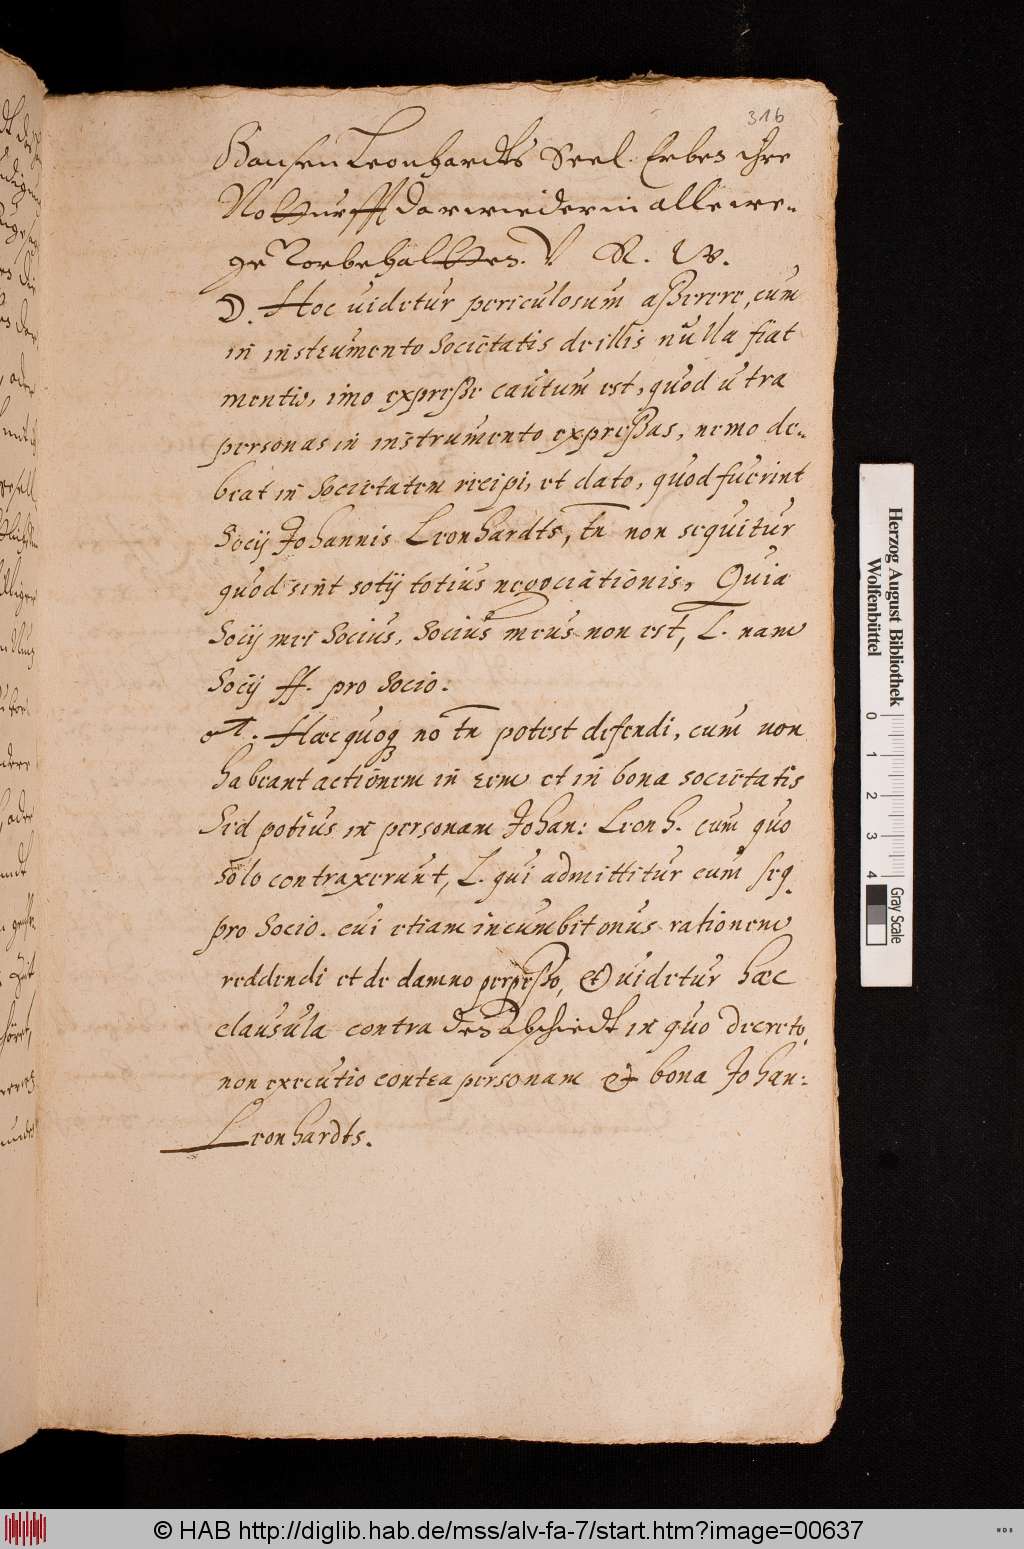 316
Hansen Leonhardts Seel. Erben ihre
Notturfft darwieder in alle we-
ge Vorbehaltten. V. R. W.
D. Hoc uidetur periculosum aßerere, cum
in instrumento Societatis de illis nulla fiat
mentio, imo expreße cautum est, quod utra
personas in instrumento expreßas, nemo de-
beat in Societatem recipi, et dato, quod fuerint
Socij Johannis Leonhardts, tn non sequitur
quod sint sotij totius negociationis, Quia
Socij mei Socius, Socius meus non est, L. nam
Socij ff. pro Socio.
A. Hæc quoq no tn potest defendi, cum non
habeant actionem in rem et in bona societatis
Sed potius in personam Johan: Leonh. cum quo
solo contraxerunt, L. qui admittitur cum seq.
pro Socio. cui etiam incumbit onus rationem
reddendi et de damno perpeßo, & uidetur hæc
clausula contra den abschiedt in quo decreto
non executio contra personam & bona Johan:
Leonhardts.
Herzog August Bibliothek
Wolfenbüttel
0 1 2 3 4
Gray Scale
© HAB http://diglib.hab.de/mss/alv-fa-7/start.htm?image=00637